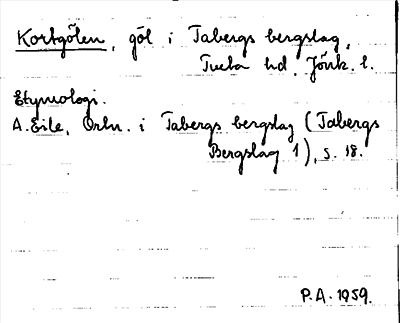 Kortgölen, göl i Tabergs bergslag,
Tveta hd. Jönk. l.
Etymologi.
A. Eile, Ortn. i Tabergs bergslag (Tabergs
Bergslag 1), s. 18.
P.A. 1959.